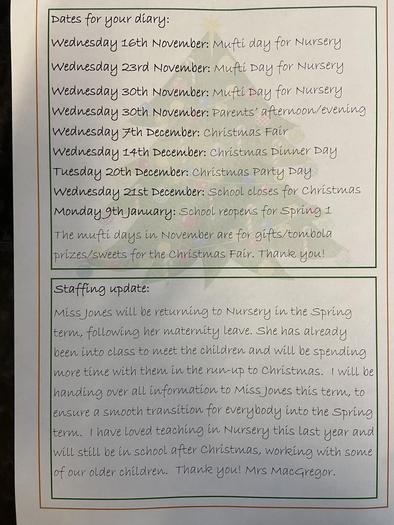 Dates for your diary:
Wednesday 16th November: Mufti day for Nursery
Wednesday 23rd November: Mufti Day for Nursery
Wednesday 30th November: Mufti Day for Nursery
Wednesday 30th November: Parents' afternoon/evening
Wednesday 7th December: Christmas Fair
Wednesday 14th December: Christmas Dinner Day
Tuesday 20th December: Christmas Party Day
Wednesday 21st December: School closes for Christmas
Monday 9th January: School reopens for Spring 1
The mufti days in November are for gifts/tombola
prizes/sweets for the Christmas Fair. Thank you!
Staffing update:
Miss Jones will be returning to Nursery in the Spring
term, following her maternity leave. She has already
been into class to meet the children and will be spending
more time with them in the run-up to Christmas. I will be
handing over all information to Miss Jones this term, to
ensure a smooth transition for everybody into the Spring
term. I have loved teaching in Nursery this last year and
will still be in school after Christmas, working with some
of our older children. Thank you! Mrs MacGregor.